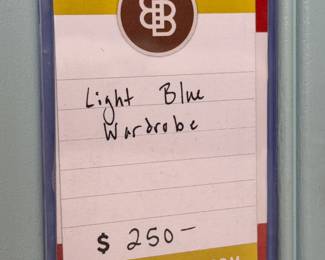 BB
Light Blue
Wardrobe
$ 250 —